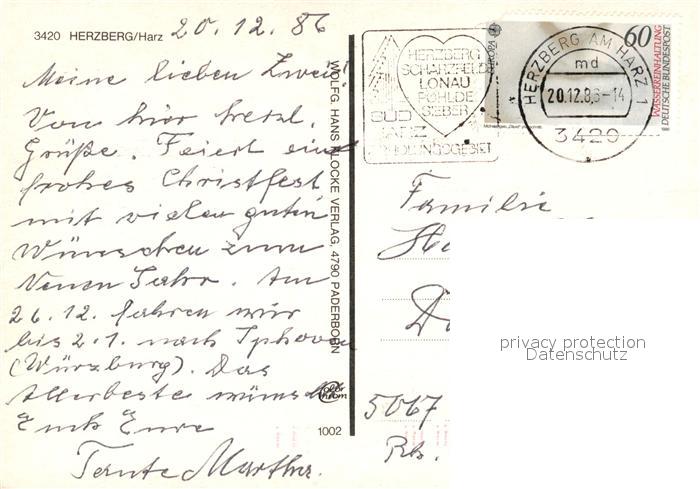 3420 HERZBERG/Harz 20.12.86
Meine lieben Zwei!
Von hier herzl.
Grüße. Feiert ein
frohes Christfest
mit vielen guten
Wünschen zum
Neuen Jahr. Am
26.12. fahren wir
bis 2.1. nach Iphoven
(Würzburg). Das
Allerbeste wünscht
Euch Eure
Tante Martha.
WOLFG. HANS KLOCKE VERLAG, 4790 PADERBORN
color
chrom
1002
HERZBERG
SCHARZFELD
LONAU
PÖHLDE
SIEBER
SÜD
HARZ
ERHOLUNGSGEBIET
EUROPA
60
WASSERREINHALTUNG
DEUTSCHE BUNDESPOST
HERZBERG AM HARZ 1
md
20.12.86-14
3420
Familie
5067
privacy protection
Datenschutz